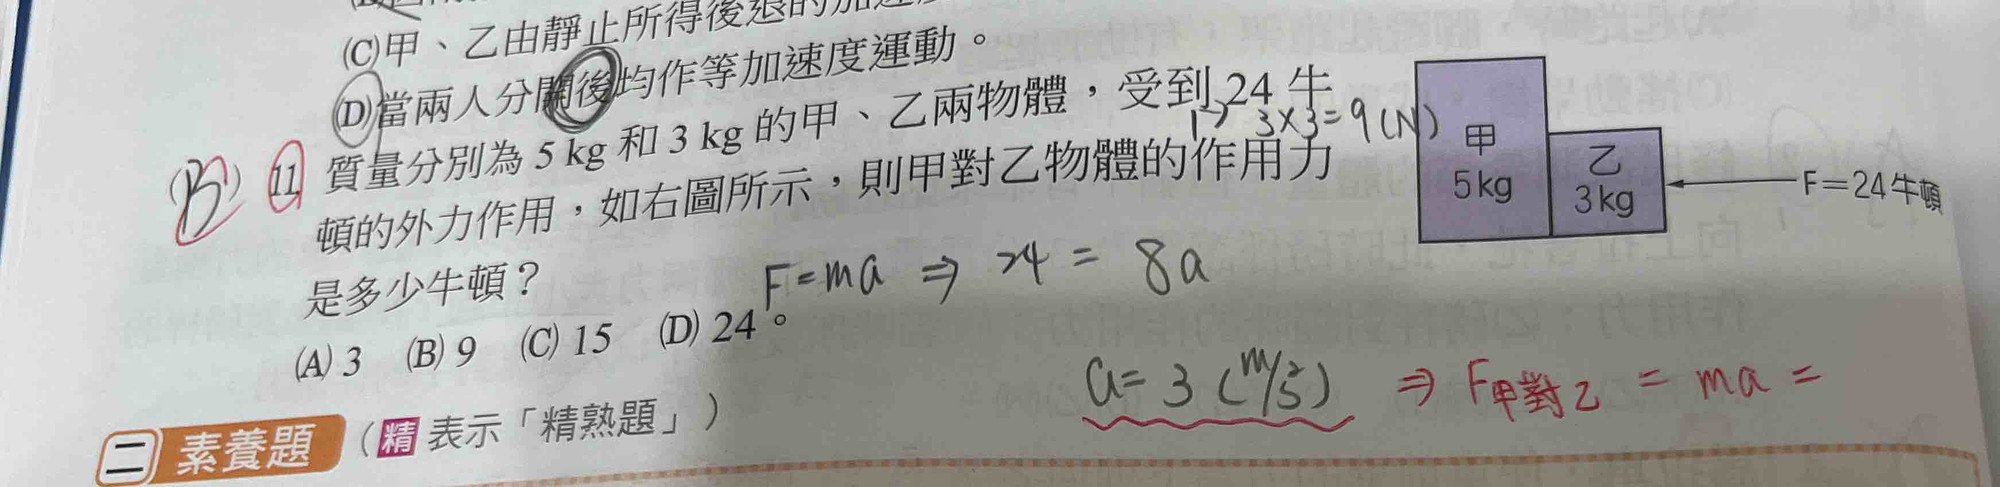 (C)甲、乙由靜止所得後退的加速
(D)當兩人分開後均作等加速度運動。
(B) 11 質量分別為 5 kg 和 3 kg 的甲、乙兩物體,受到 24 牛
3×3=9(N)
頓的外力作用,如右圖所示,則甲對乙物體的作用力
是多少牛頓?
F=ma ⇒ 24 = 8a
(A) 3 (B) 9 (C) 15 (D) 24。
a=3 (m/s²) ⇒ F甲對乙 = ma =
甲
5kg
乙
3kg
F=24牛頓
二 素養題 (精 表示「精熟題」)